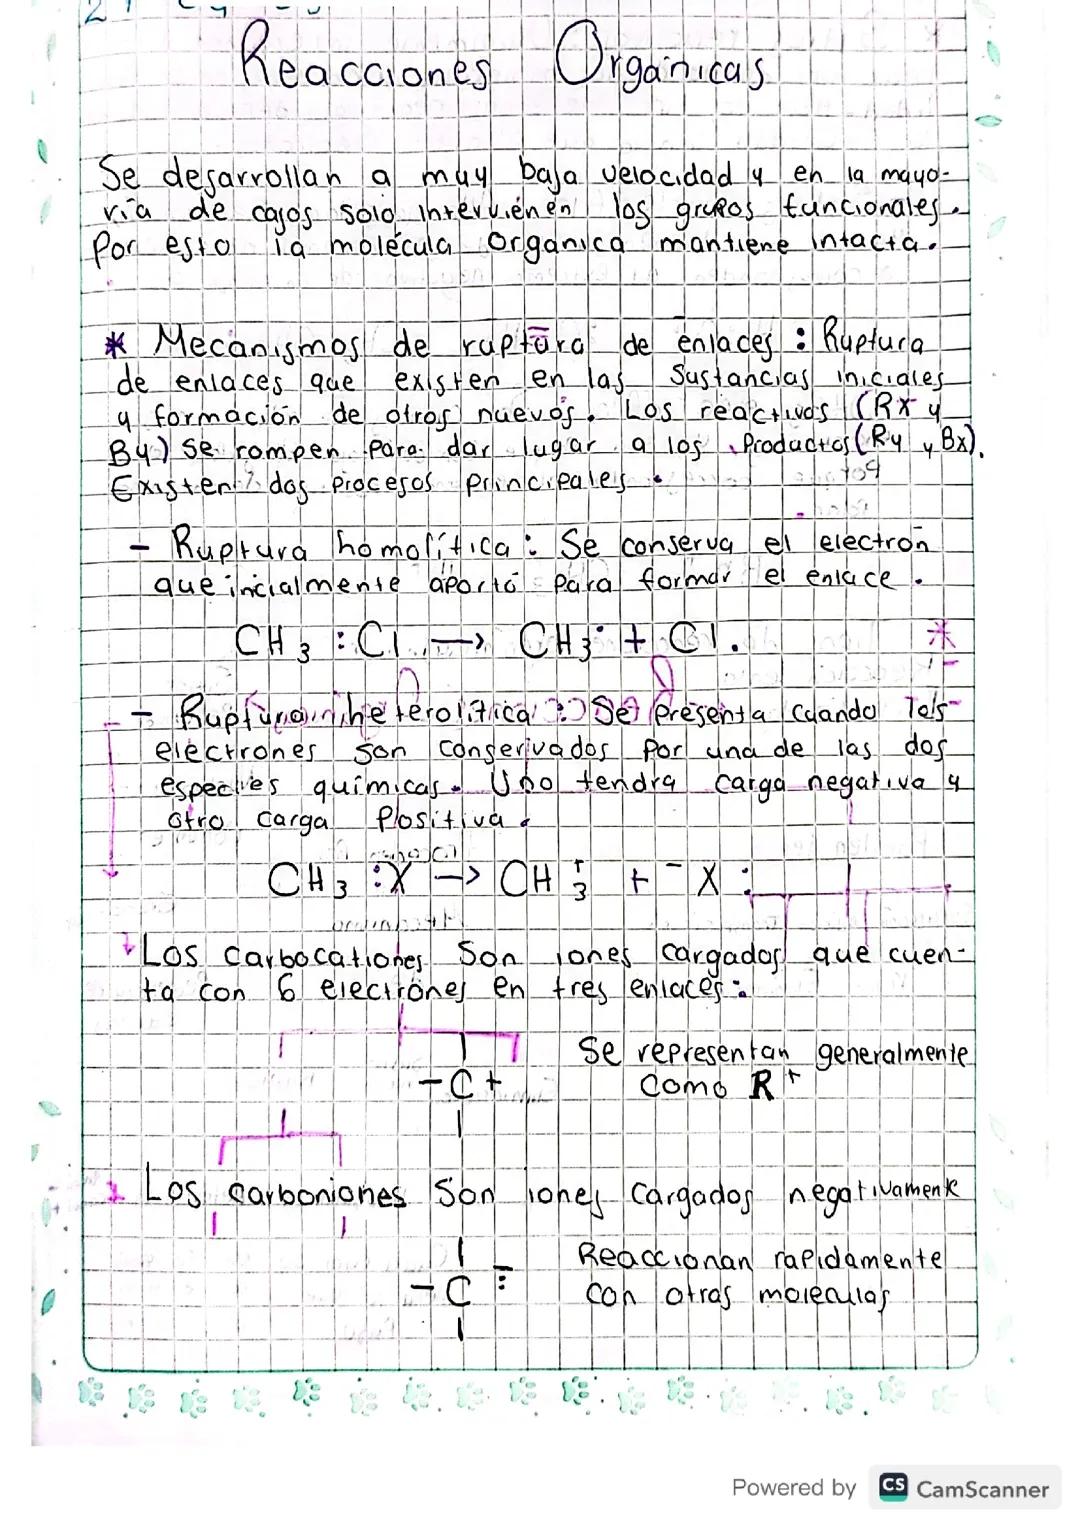 Reacciones Orgánicas
Se desarrollan a muy baja velocidad y en la mayo-
ría de casos solo intervienen los grupos funcionales.
Por esto la molécula orgánica mantiene intacta.
* Mecanismos de ruptura de enlaces: Ruptura
de enlaces que existen en las sustancias iniciales
y formación de otros nuevos. Los reactivos (Rx y
By) se rompen para dar lugar a los productos (Ry y Bx).
Existen dos procesos principales.
- Ruptura homolítica: Se conserva el electrón
que incialmente aportó para formar el enlace.
CH3 : Cl → CH3· + Cl.
*
- Ruptura heterolítica: Se presenta cuando los
electrones son conservados por una de las dos
especies químicas. Uno tendra carga negativa y
otro carga positiva.
CH3 :X -> CH3+ + -X:
Los carbocationes son iones cargados que cuen-
ta con 6 electrones en tres enlaces:
Se representan generalmente
- C +
como R+
Los carboniones son iones cargados negativamente
Reaccionan rapidamente
- C :-
con otras moleculas
Powered by CS CamScanner